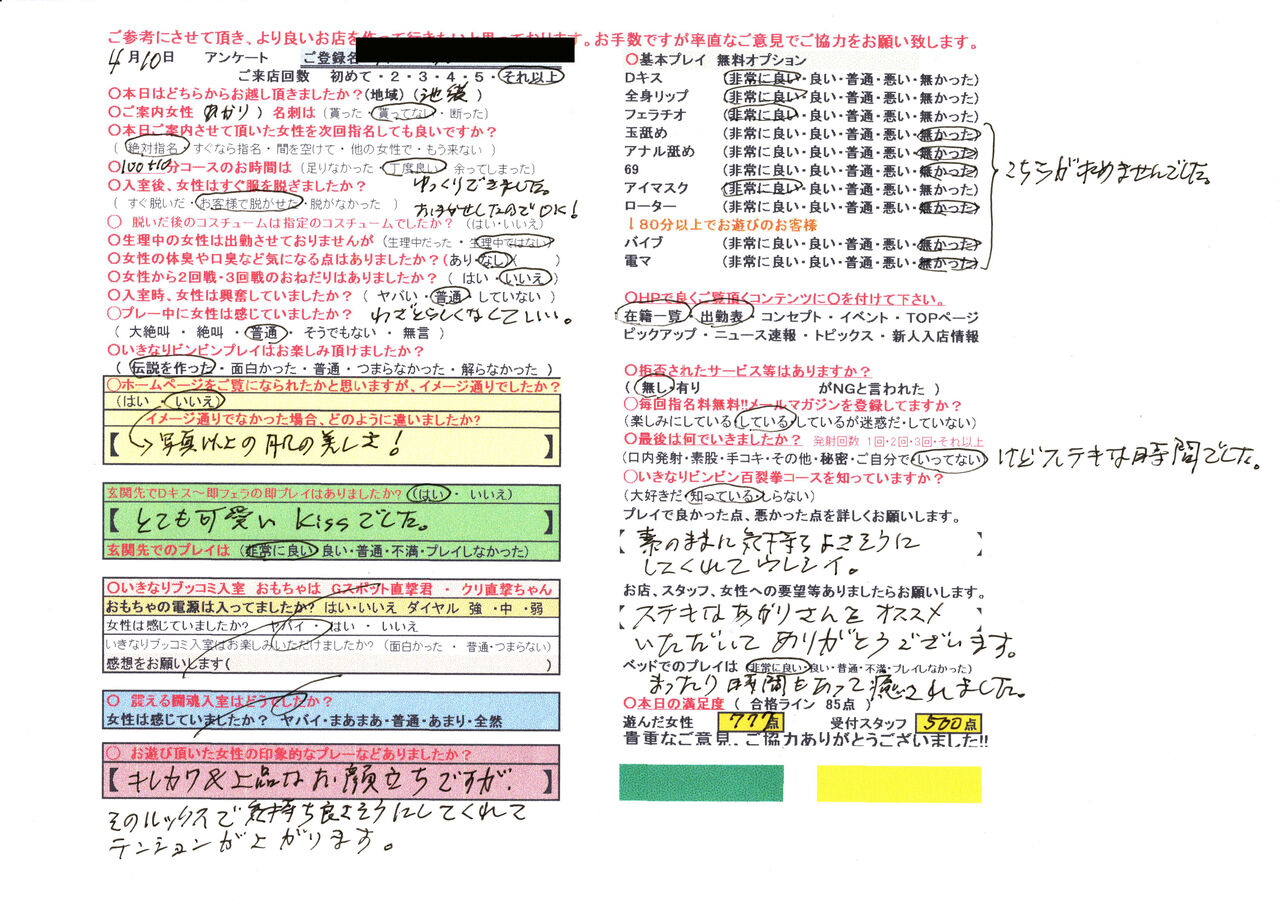 ご参考にさせて頂き、より良いお店を作って行きたいと思っております。お手数ですが率直なご意見でご協力をお願い致します。
4月10日　アンケート　ご登録名
ご来店回数　初めて・2・3・4・5・それ以上
〇本日はどちらからお越し頂きましたか？(地域)（池袋　）
〇ご案内女性　あかり　）名刺は（貰った・貰ってない・断った）
〇本日ご案内させて頂いた女性を次回指名しても良いですか？
（　絶対指名・すぐなら指名・間を空けて・他の女性で・もう来ない　）
〇100+10分コースのお時間は（足りなかった・丁度良い・余ってしまった）
〇入室後、女性はすぐ服を脱ぎましたか？　ゆっくりできました。
（　すぐ脱いだ・お客様で脱がせた・脱がなかった　）　おまかせしたのでOK！
〇　脱いだ後のコスチュームは指定のコスチュームでしたか？（はい・いいえ）
〇生理中の女性は出勤させておりませんが（生理中だった・生理中ではない）
〇女性の体臭や口臭など気になる点はありましたか？（あり・なし）（　　）
〇女性から2回戦・3回戦のおねだりはありましたか？（　はい・いいえ　）
〇入室時、女性は興奮していましたか？（　ヤバい・普通・していない　）
〇プレー中に女性は感じていましたか？　わざとらしくなくていい。
（　大絶叫・絶叫・普通・そうでもない・無言　）
〇いきなりビンビンプレイはお楽しみ頂けましたか？
（　伝説を作った・面白かった・普通・つまらなかった・解らなかった　）
〇ホームページをご覧になられたかと思いますが、イメージ通りでしたか？
（はい　・　いいえ）
イメージ通りでなかった場合、どのように違いましたか？
【　写真以上の肌の美しさ！　】
玄関先でDキス～即フェラの即プレイはありましたか？（はい・いいえ）
【　とても可愛いKissでした。　】
玄関先でのプレイは（非常に良い・良い・普通・不満・プレイしなかった）
〇いきなりブッコミ入室　おもちゃは　Gスポット直撃君・クリ直撃ちゃん
おもちゃの電源は入ってましたか？　はい・いいえ　ダイヤル　強・中・弱
女性は感じていましたか？　ヤバイ・はい・いいえ
いきなりブッコミ入室はお楽しみいただけましたか？（面白かった・普通・つまらない）
感想をお願いします（　　）
〇　震える闘魂入室はどうでしたか？
女性は感じていましたか？　ヤバイ・まあまあ・普通・あまり・全然
〇　お遊び頂いた女性の印象的なプレーなどありましたか？
【　キレカワ&上品なお顔立ちですが、　】
そのルックスで気持ち良さそうにしてくれて
テンションが上がります。
〇基本プレイ　無料オプション
Dキス　（非常に良い・良い・普通・悪い・無かった）
全身リップ　（非常に良い・良い・普通・悪い・無かった）
フェラチオ　（非常に良い・良い・普通・悪い・無かった）
玉舐め　（非常に良い・良い・普通・悪い・無かった）
アナル舐め　（非常に良い・良い・普通・悪い・無かった）
69　（非常に良い・良い・普通・悪い・無かった）
アイマスク　（非常に良い・良い・普通・悪い・無かった）
ローター　（非常に良い・良い・普通・悪い・無かった）
こちらが求めませんでした。
↓80分以上でお遊びのお客様
バイブ　（非常に良い・良い・普通・悪い・無かった）
電マ　（非常に良い・良い・普通・悪い・無かった）
〇HPで良くご覧頂くコンテンツに〇を付けて下さい。
在籍一覧・出勤表・コンセプト・イベント・TOPページ
ピックアップ・ニュース速報・トピックス・新人入店情報
〇拒否されたサービス等はありますか？
（　無し・有り　　がNGと言われた　）
〇毎回指名料無料!!メールマガジンを登録してますか？
（楽しみにしている・している・しているが迷惑だ・していない）
〇最後は何でいきましたか？　発射回数　1回・2回・3回・それ以上
（口内発射・素股・手コキ・その他・秘密・ご自分で・いってない）けどステキな時間でした。
〇いきなりビンビン百裂拳コースを知っていますか？
（大好きだ・知っている・しらない）
プレイで良かった点、悪かった点を詳しくお願いします。
【　素のままに気持ちよさそうに　】
してくれてウレシイ。
お店、スタッフ、女性への要望等ありましたらお願いします。
【　ステキなあかりさんをオススメ　】
いただいてありがとうございます。
ベッドでのプレイは（非常に良い・良い・普通・不満・プレイしなかった）
まったり時間もあって癒されました。
〇本日の満足度　（　合格ライン　85点　）
遊んだ女性　777点　受付スタッフ　500点
貴重なご意見、ご協力ありがとうございました!!